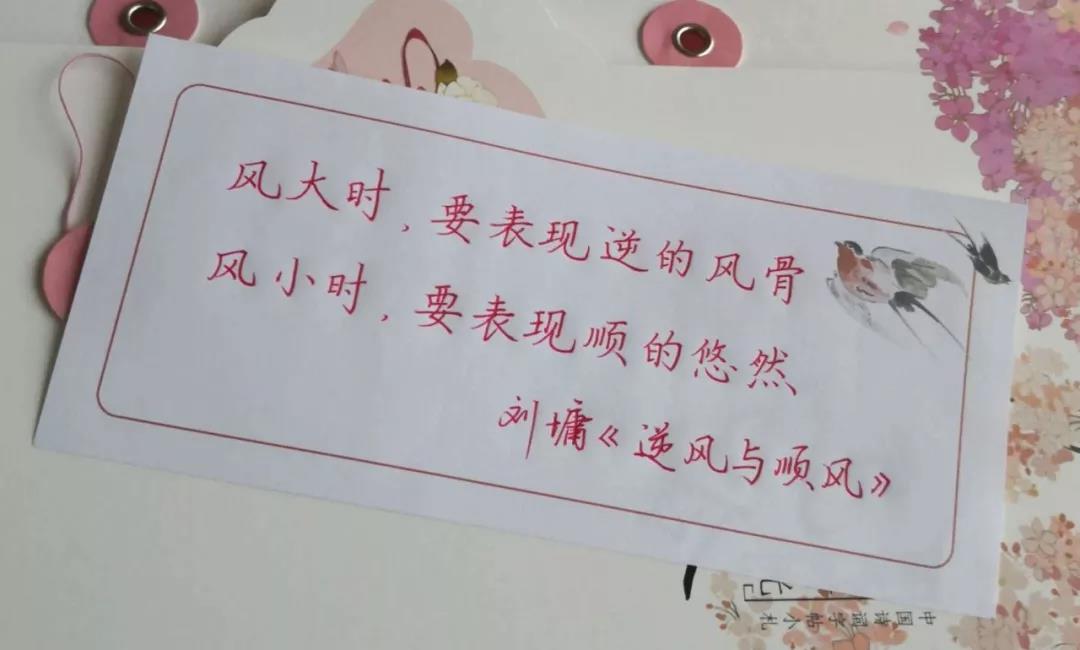 风大时,要表现逆的风骨
风小时,要表现顺的悠然
刘墉《逆风与顺风》
中国诗词字帖小札